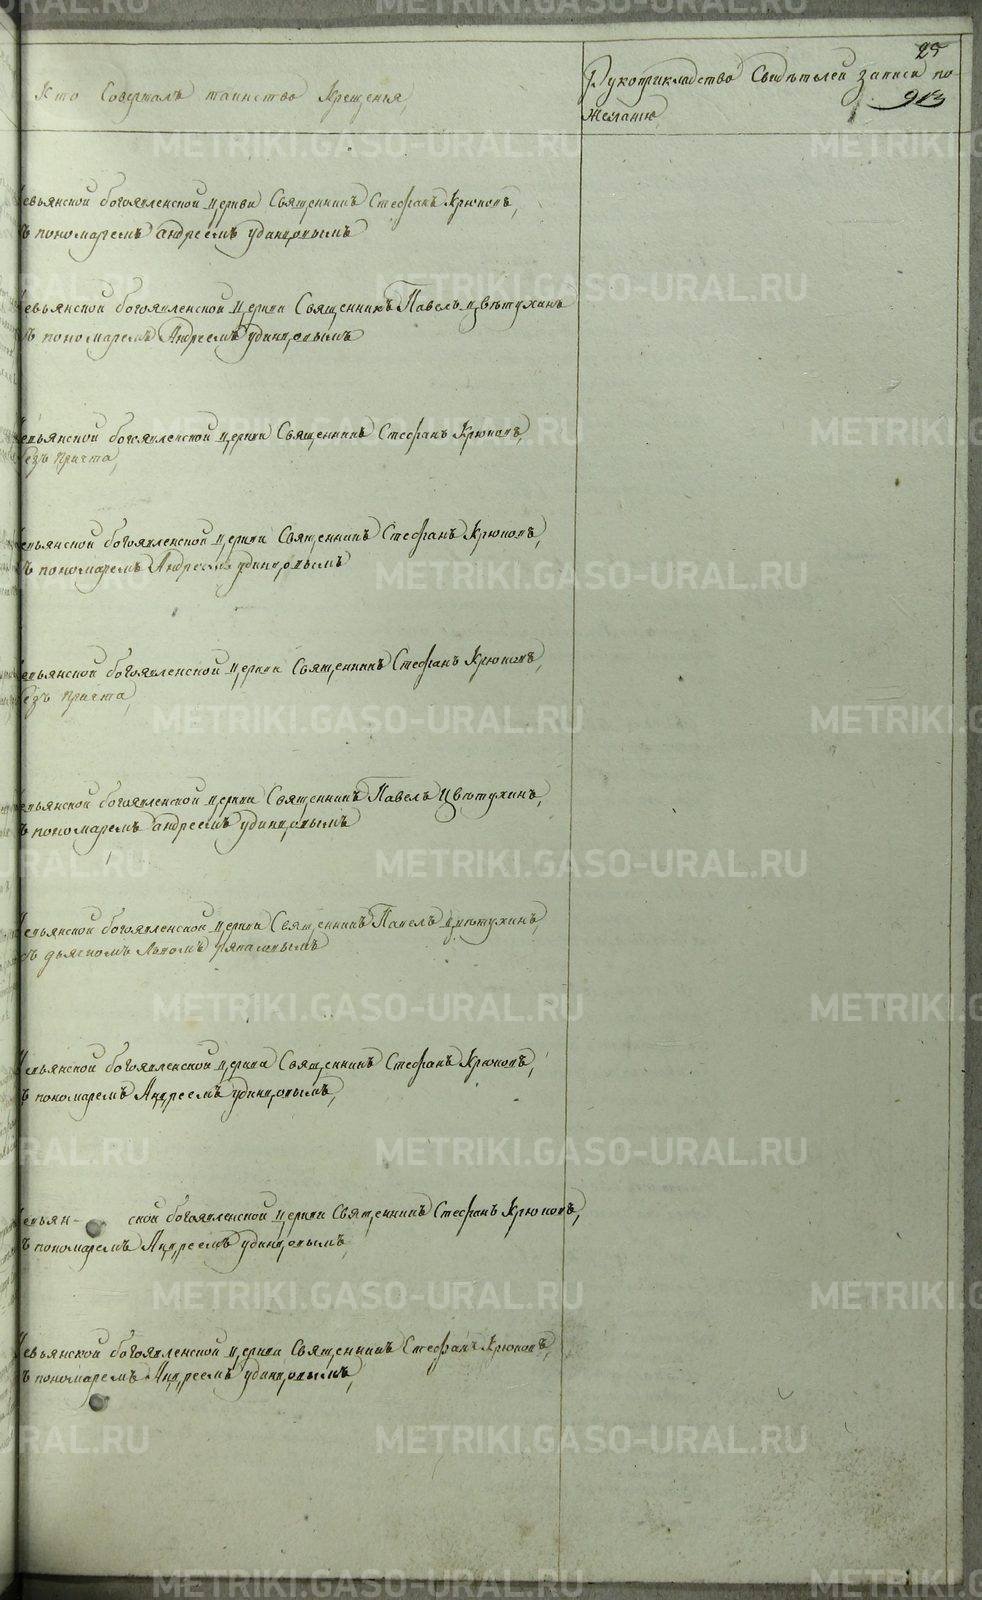 25
Кто Совершалъ таинство Крещенія,
Рукоприкладство Свидѣтелей записи по
желанію
Невьянской богоявленской церкви Священникъ Стефанъ Крюковъ,
съ пономаремъ андреемъ удинцовымъ
Невьянской богоявленской церкви Священникъ Павелъ цвѣтухинъ
съ пономаремъ Андреемъ удинцовымъ
Невьянской богоявленской церкви Священникъ Стефанъ Крюковъ,
безъ причта,
Невьянской богоявленской церкви Священникъ Стефанъ Крюковъ,
съ пономаремъ Андреемъ удинцовымъ
Невьянской богоявленской церкви Священникъ Стефанъ Крюковъ,
безъ причта,
Невьянской богоявленской церкви Священникъ Павелъ Цвѣтухинъ,
съ пономаремъ андреемъ удинцовымъ
Невьянской богоявленской церкви Священникъ Павелъ цвѣтухинъ,
съ дьячкомъ Львомъ
Невьянской богоявленской церкви Священникъ Стефанъ Крюковъ,
съ пономаремъ Андреемъ удинцовымъ,
Невьян- ской богоявленской церкви Священникъ Стефанъ Крюковъ,
съ пономаремъ Андреемъ удинцовымъ,
Невьянской богоявленской церкви Священникъ Стефанъ Крюковъ,
съ пономаремъ Андреемъ удинцовымъ,
METRIKI.GASO-URAL.RU